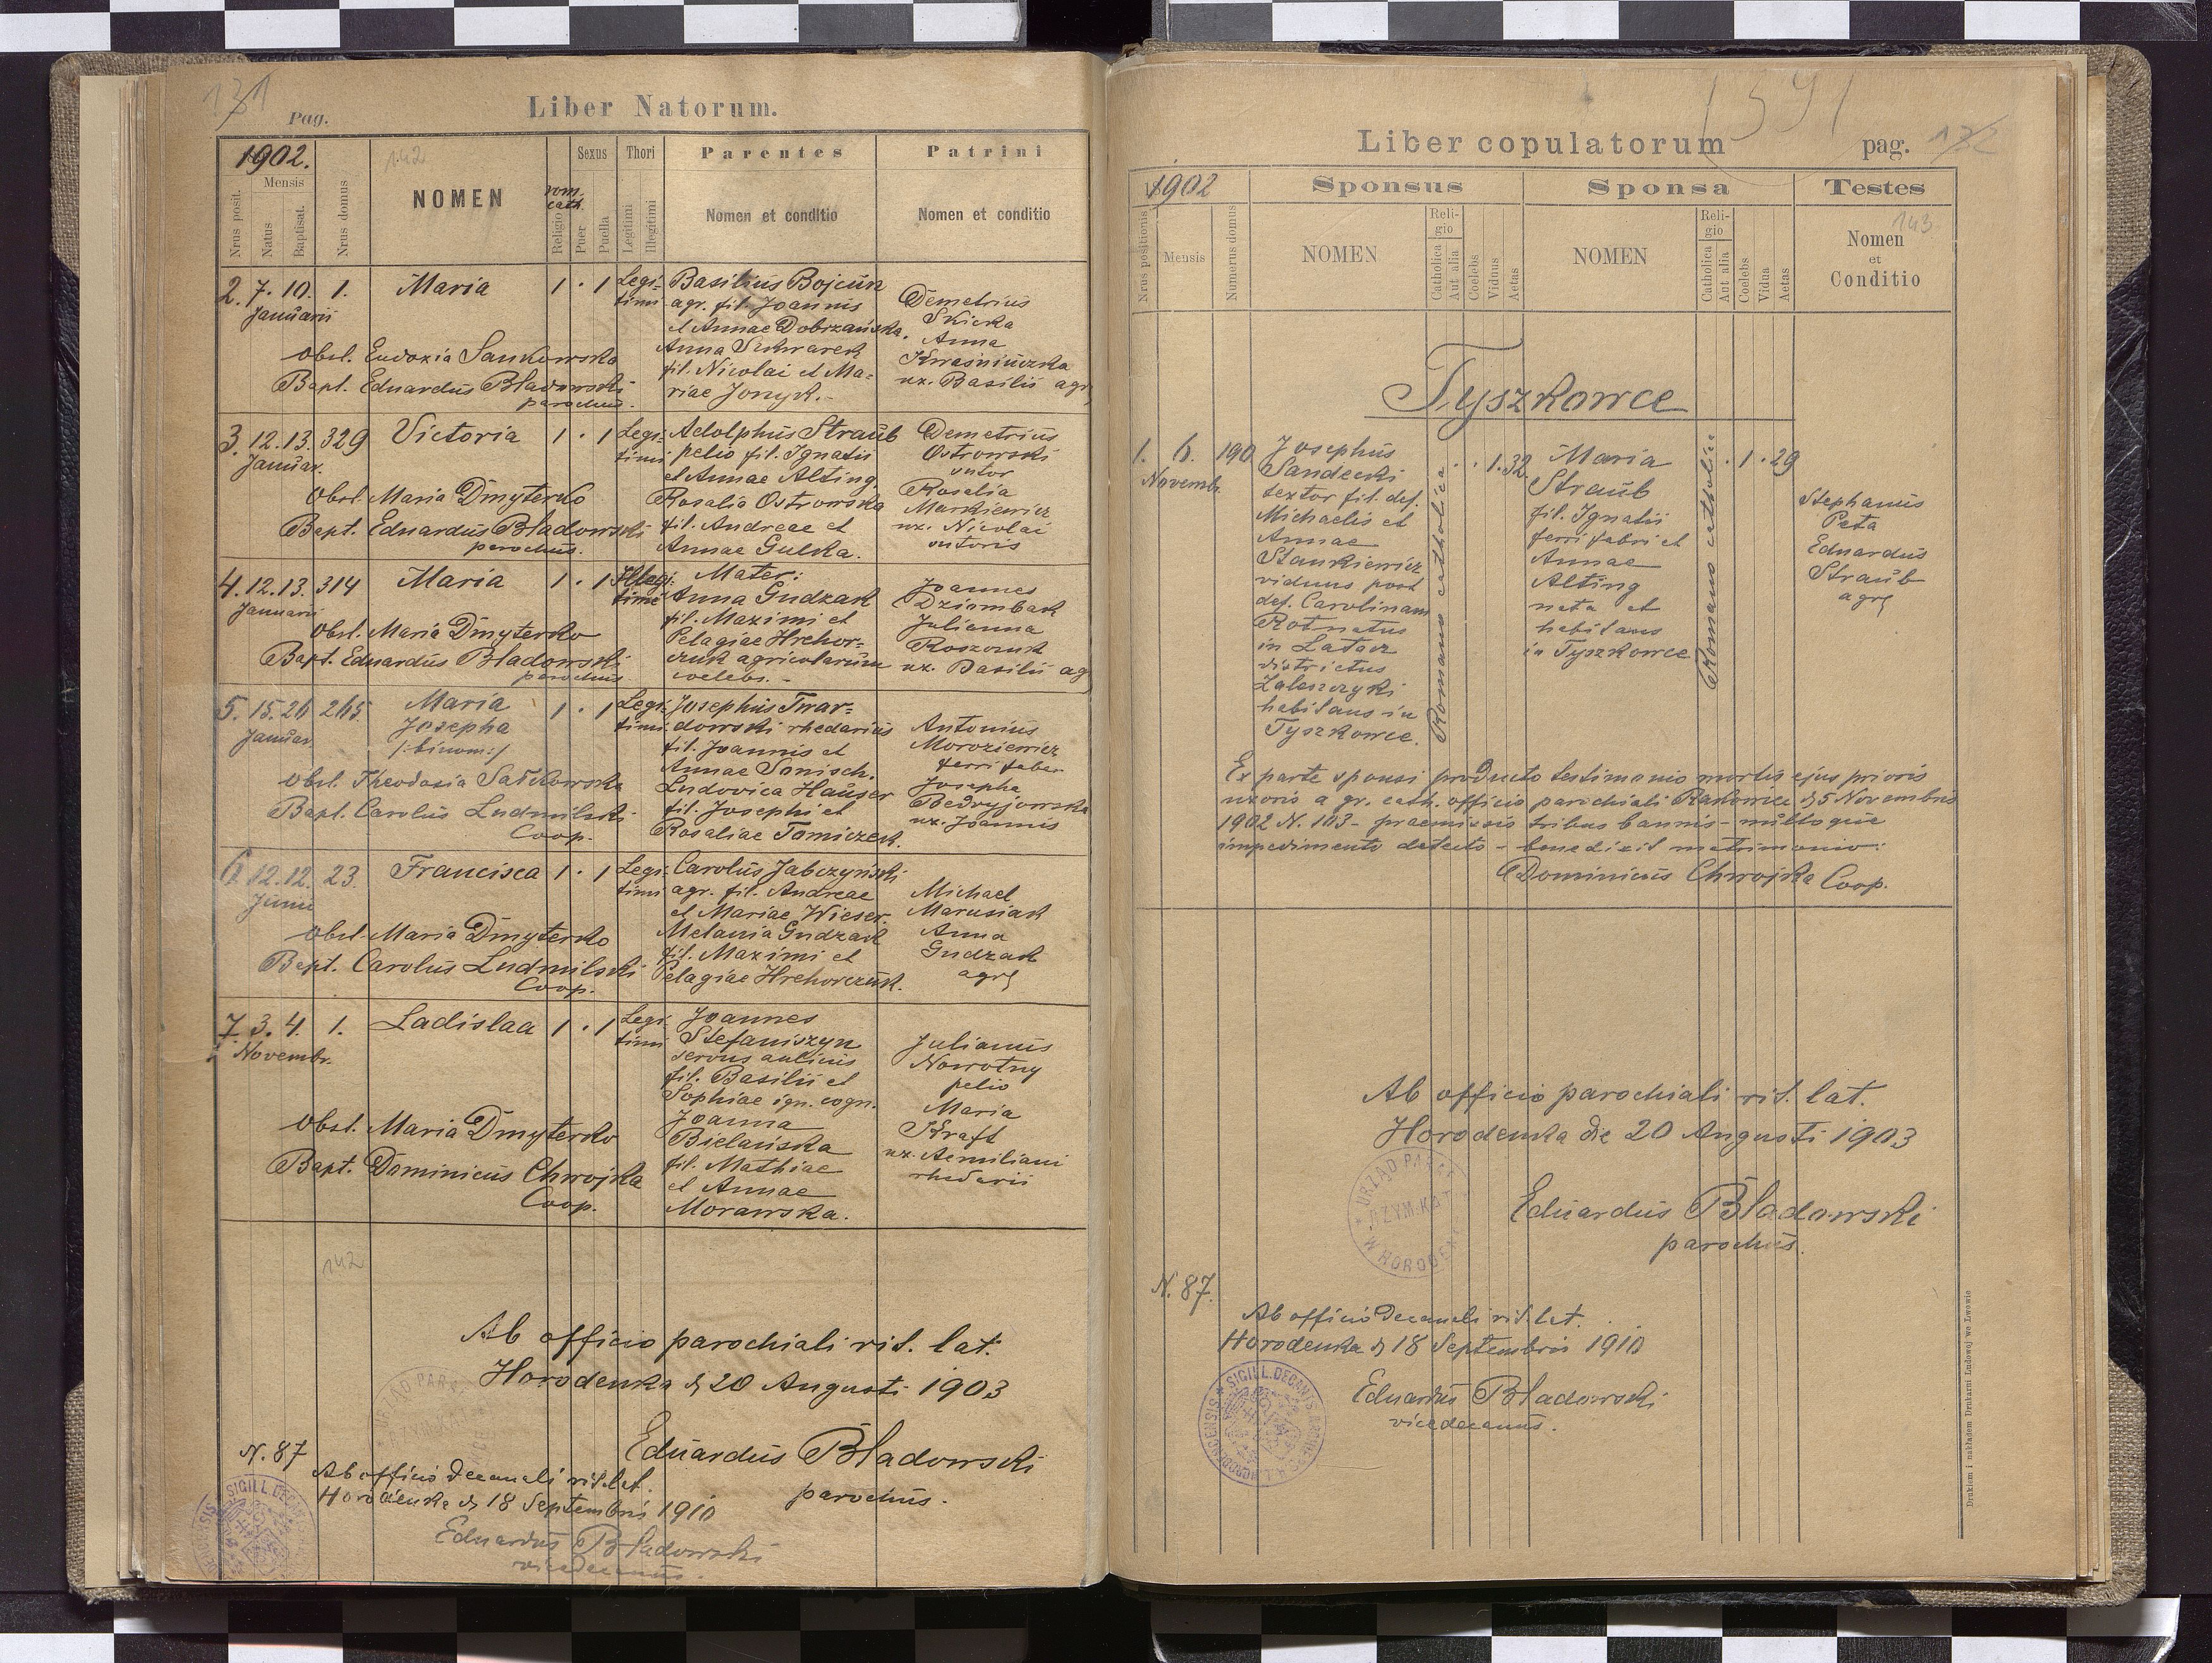 131
Pag.
Liber Natorum.
1902.
142
Sexus
Thori
Parentes
Patrini
Mensis
Nrus posit.
Natus
Baptisat.
Nrus domus
NOMEN
rom. cath.
Religio
Puer
Puella
Legitimi
Illegitimi
Nomen et conditio
Nomen et conditio
2. 7. 10. 1. Maria 1 · 1 Legi-
Januarii
timi
Basilius Bojcun
agr. fil. Joannis
et Annae Dobrzańska.
Anna
fil. Nicolai et Ma-
riae Jonyk.-
Demetrius
Skicka
Anna
Kwaśniuczka
ux. Basilii agr
Obst. Eudoxia Sankowska
Bapt. Eduardus Bładowski
parochus.
3. 12. 13. 329 Victoria 1 · 1 Legi-
Januar.
timi
Adolphus Straub
pelio fil. Ignatii
et Annae Alting.
Rosalia Ostrowska
fil. Andreae et
Annae Gulka.
Demetrius
Ostrowski
sutor
Rosalia
Markiewicz
ux. Nicolai
sutoris
Obst. Maria Dmyterko
Bapt. Eduardus Bładowski
parochus.
4. 12. 13. 314 Maria 1 · 1 Illegi-
Januarii
timi
Mater:
Anna Gudzak
fil. Maximi et
Pelagiae Hrehor-
czuk agricolarum
coelebs. -
Joannes
Dziombak
Julianna
Roszczuk
ux. Basilii ag
Obst. Maria Dmyterko
Bapt. Eduardus Bładowski
parochus
5. 15. 26 265 Maria 1 · 1 Legi-
Januar.
Josepha
timi
/:binom:/
Josephus Twar-
dowski rhedarius
fil. Joannis et
Annae Sonisch.
Ludovica Hauser
fil. Josephi et
Rosaliae Tomiczek.
Antonius
Moroziewicz
ferri faber
Josepha
ux. Joannis
Obst. Theodosia Sałkowska
Bapt. Carolus Ludmilski
Coop.
6 12. 12. 23. Francisca 1 · 1 Legi-
Junii
timi
Carolus Jabczyński
agr. fil. Andreae
et Mariae Wieser.
Melania Gudzak
fil. Maximi et
Pelagiae Hrehorczuk.
Michael
Marusiak
Anna
Gudzak
agr
Obst. Maria Dmyterko
Bapt. Carolus Ludmilski
Coop.
7. 3. 4. 1. Ladislaa 1 · 1 Legi-
Novembr.
timi
Joannes
Stefaniszyn
servus aulicus
fil. Basilii et
Sophiae ign. cogn.
Joanna
Bielańska
fil. Mathiae
et Annae
Morawska.
Julianus
Nowotny
pelio
Maria
Kraft
ux. Aemiliani
rhedarii
Obst. Maria Dmyterko
Bapt. Dominicus Chwojka
Coop.
142
Ab officio parochiali rit. lat.
Horodenka d. 20 Augusti 1903
Eduardus Bładowski
parochus.
N. 87
Ab officio decanali rit. lat.
Horodenka d. 18 Septembris 1910
Eduardus Bładowski
vicedecanus.
591
Liber copulatorum
pag. 132
1902
Sponsus
Sponsa
Testes
143
Nrus positionis
Mensis
Numerus domus
NOMEN
Religio
Catholica
Aut alia
Coelebs
Viduus
Aetas
NOMEN
Religio
Catholica
Aut alia
Coelebs
Vidua
Aetas
Nomen
et
Conditio
Tyszkowce
1. 6. 190
Novembr.
Josephus
Sandecki
textor fil. def.
Michaelis et
Annae
Stankiewicz
viduus post
def. Carolinam
Rot natus
in Latacz
districtus
Zaleszczyki
habitans in
Tyszkowce.
Romano catholica
· · 1 · 32
Maria
Straub
fil. Ignatii
ferri fabri et
Annae
Alting
nata et
habitans
in Tyszkowce
Romano catholica
· 1 · 29
Stephanus
Peta
Eduardus
Straub
agr
Ex parte sponsi producto testimonio mortis ejus prioris
uxoris a gr. cath. officio parochiali Rakowiec d. 5 Novembris
1902 N. 103 - praemissis tribus bannis - nulloque
impedimento detecto - benedixit matrimonio:
Dominicus Chwojka Coop.
Ab officio parochiali rit. lat.
Horodenka die 20 Augusti 1903
Eduardus Bładowski
parochus.
N. 87.
Ab officio decanali rit. lat.
Horodenka d. 18 Septembris 1910
Eduardus Bładowski
vicedecanus.
Drukiem i nakładem Drukarni Ludowej we Lwowie